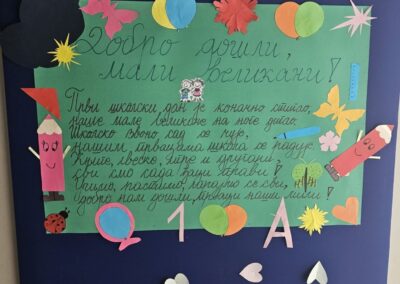 Добро дошли,
мали великани!
Први школски дан је коначно стигао,
наше мале великане на ноге дигао.
Школско звоно сад се чује,
нашим првацима школа се радује.
Књиге, свеске, игре и другари,
сви смо сада ђаци прави!
Учимо, растимо, јер
добро нам дошли, прваци наши мили!
1 А